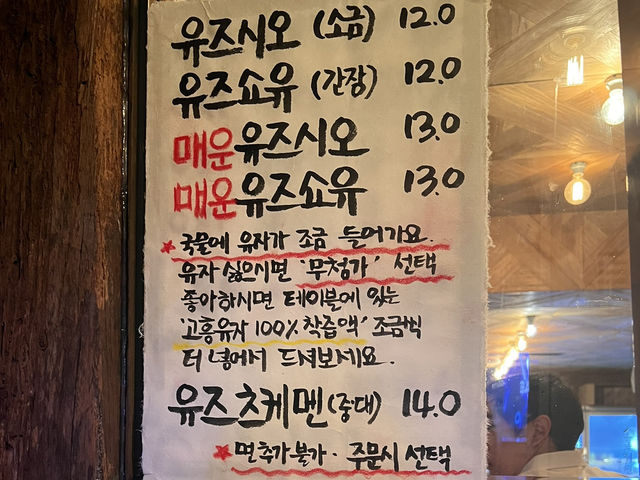 유즈시오 (소금) 12.0
유즈쇼유 (간장) 12.0
매운유즈시오 13.0
매운유즈쇼유 13.0
★ 국물에 유자가 조금 들어가요.
유자 싫으시면 '무첨가' 선택
좋아하시면 테이블에 있는
'고흥유자 100% 착즙액' 조금씩
더 넣어서 드셔보세요.
유즈츠케멘 (중대) 14.0
★ 면추가불가 · 주문시 선택